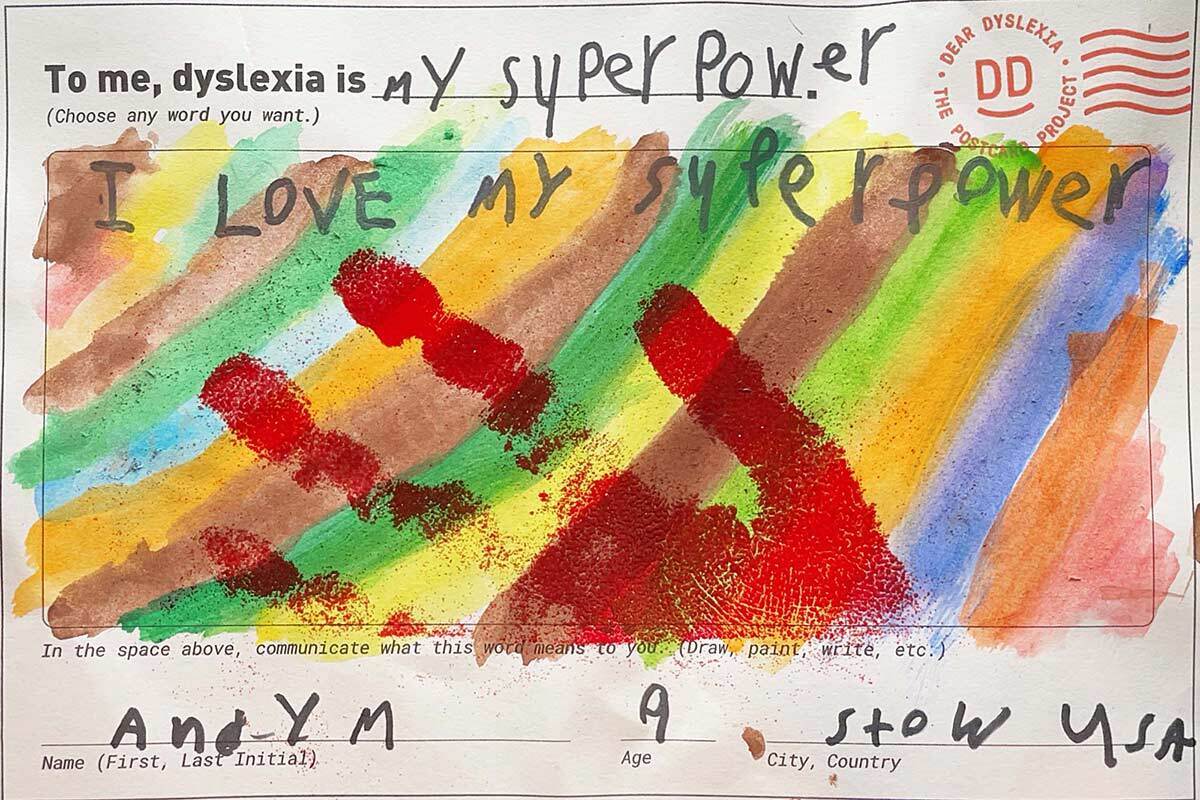 To me, dyslexia is MY superPower.
(Choose any word you want.)
THE POSTCARD PROJECT • DEAR DYSLEXIA •
DD
I LOVE MY superpower
In the space above, communicate what this word means to you. (Draw, paint, write, etc.)
And-Y M 9 Stow USA
Name (First, Last Initial) Age City, Country